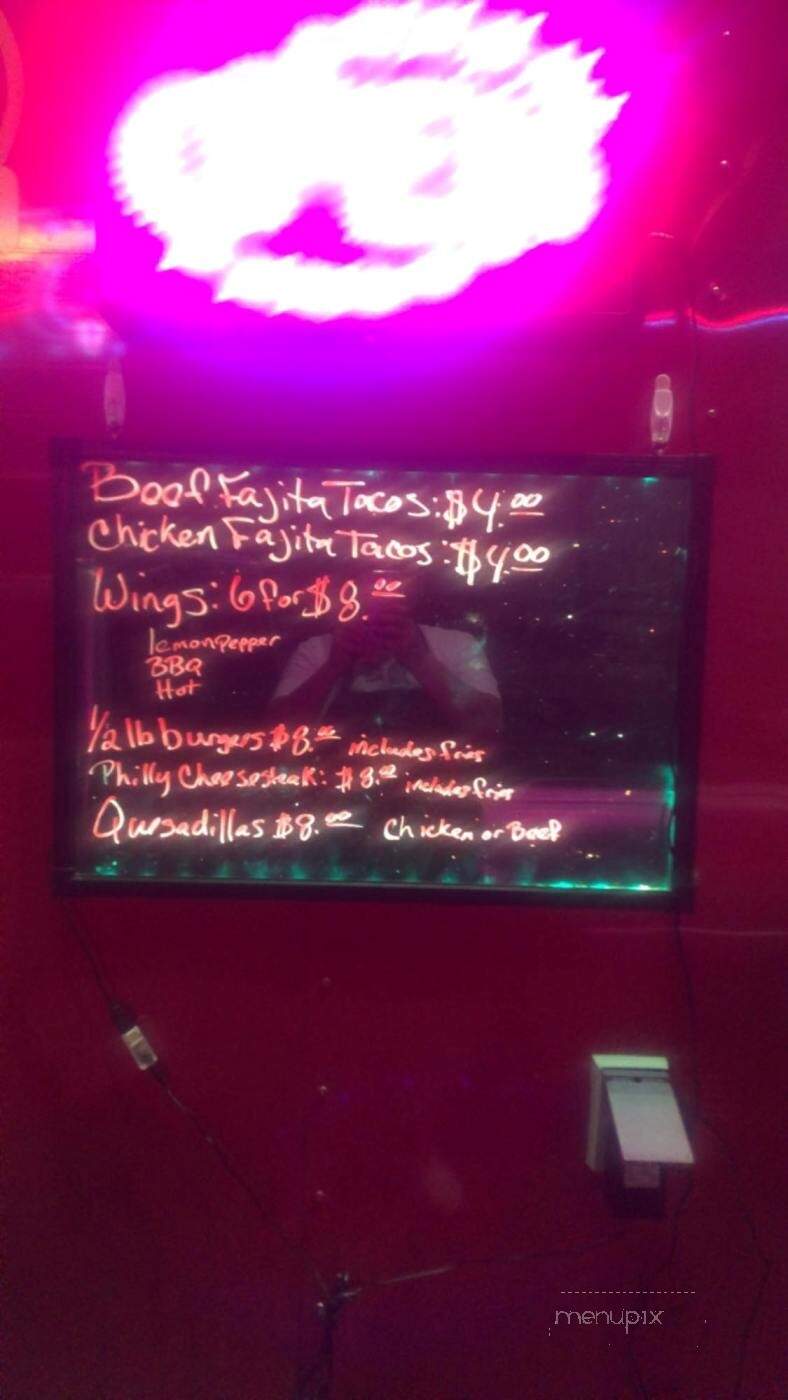 Beef Fajita Tacos: $4.00
Chicken Fajita Tacos: $4.00
Wings: 6 for $8.00
lemon pepper
BBQ
Hot
1/2 lb burgers $8.00 includes fries
Philly Cheesesteak: $8.00 includes fries
Quesadillas $8.00 Chicken or Beef
menupix